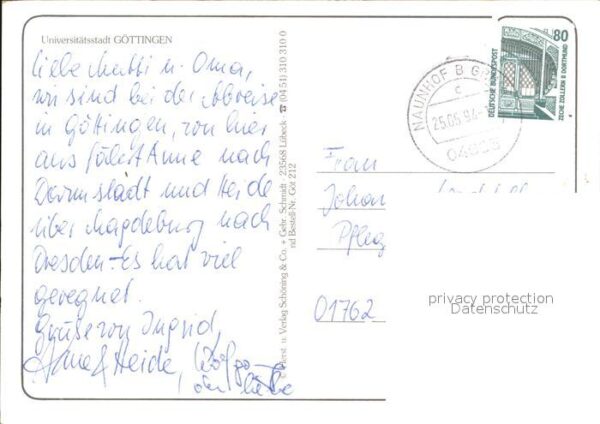 Universitätsstadt GÖTTINGEN
liebe Mutti u. Oma,
wir sind bei der Abreise
in Göttingen, von hier
aus fährt Anne nach
Darmstadt und Heide
über Magdeburg nach
Dresden. Es hat viel
geregnet.
Grüße von Ingrid,
Anne & Heide,
u. Verlag Schöning & Co. + Gebr. Schmidt · 23568 Lübeck · ☎ (04 51) 310 310 0
Bestell-Nr. Göt 212
NAUNHOF B
25.05.94
DEUTSCHE BUNDESPOST
80
ZECHE ZOLLERN II DORTMUND
Frau
Johan
Pfleg
01762
privacy protection
Datenschutz